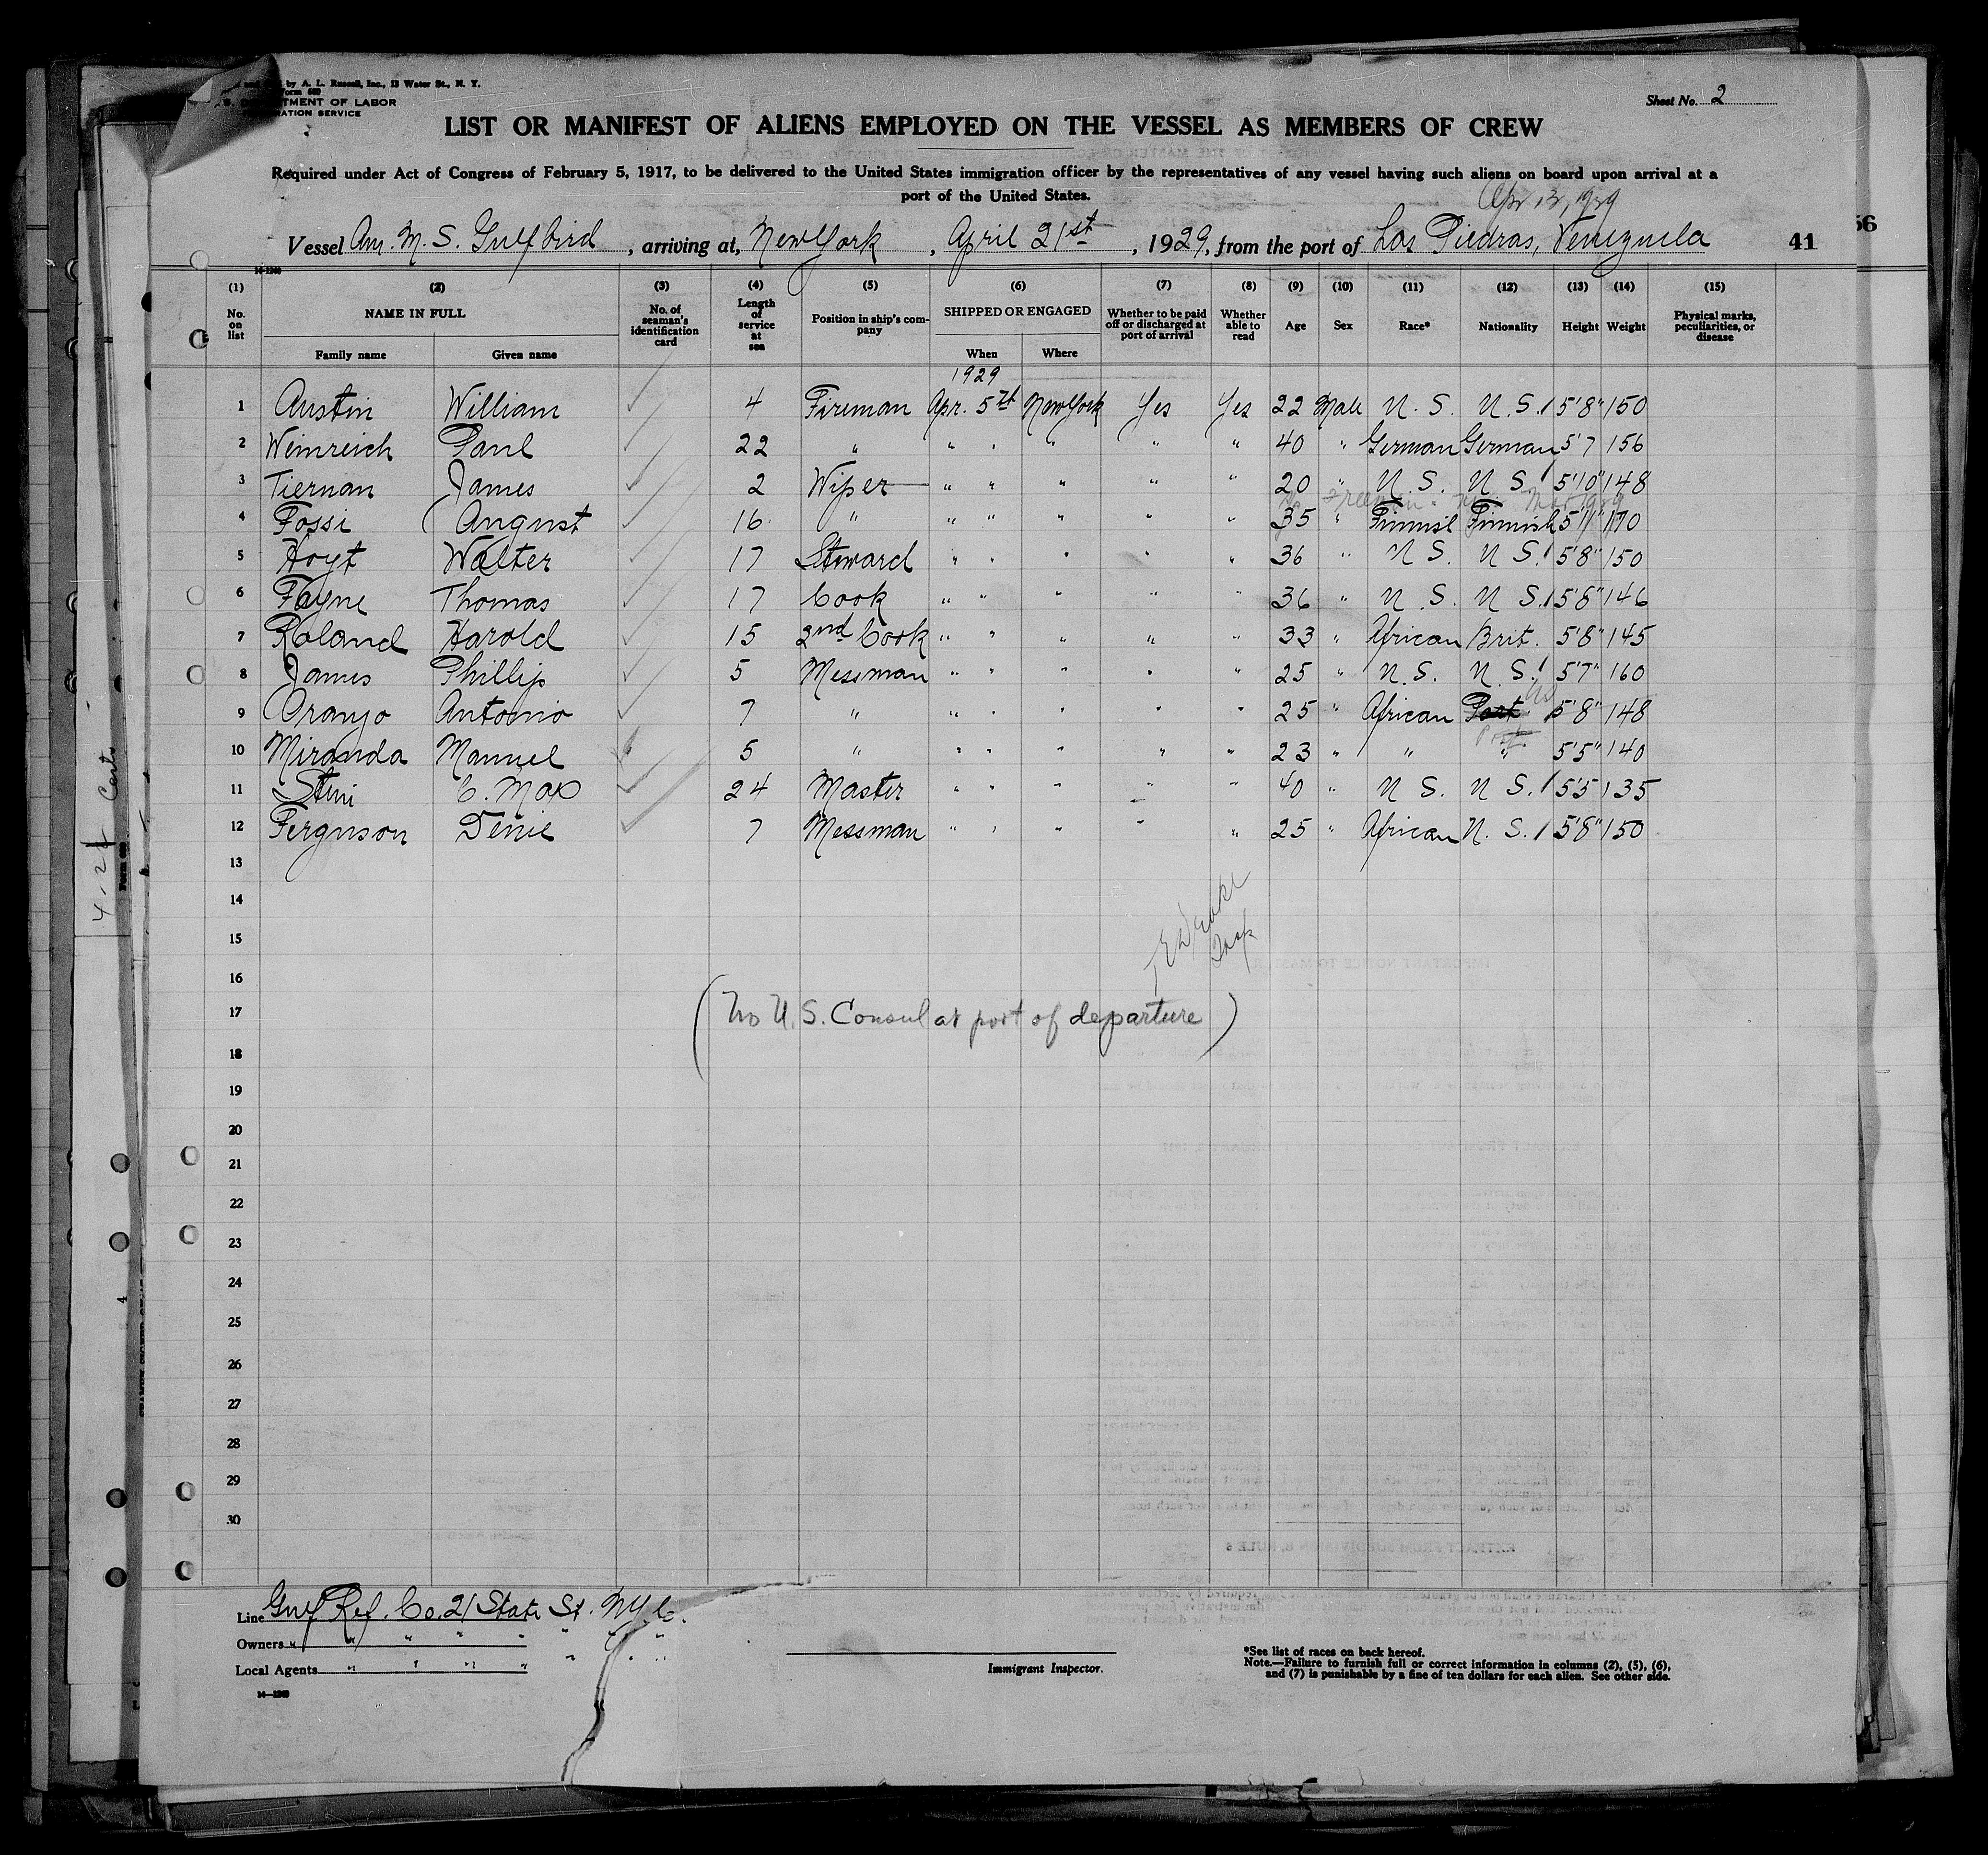 by A. L. Russell, Inc., 13 Water St., N. Y.
Form 680
TMENT OF LABOR
ATION SERVICE
Sheet No. 2
LIST OR MANIFEST OF ALIENS EMPLOYED ON THE VESSEL AS MEMBERS OF CREW
Required under Act of Congress of February 5, 1917, to be delivered to the United States immigration officer by the representatives of any vessel having such aliens on board upon arrival at a
port of the United States.
Apr 13, 1929
Vessel Am. M. S. Gulfbird, arriving at, New York, April 21st, 1929, from the port of Las Piedras, Venezuela
41
56
14-1240
(1) (2) (3) (4) (5) (6) (7) (8) (9) (10) (11) (12) (13) (14) (15)
No. on list NAME IN FULL Family name Given name No. of seaman's identification card Length of service at sea Position in ship's company SHIPPED OR ENGAGED When Where Whether to be paid off or discharged at port of arrival Whether able to read Age Sex Race* Nationality Height Weight Physical marks, peculiarities, or disease
1929
1 Austin William 4 Fireman Apr. 5th New York Yes Yes 22 Male U. S. U. S. 5'8" 150
2 Weinreich Paul 22 " " " " " " 40 " German German 5'7 156
3 Tiernan James 2 Wiper " " " " " 20 " U. S. U. S. 5'10" 148
4 Fossi August 16 " " " " " " 35 " Finnish Finnish 5'11" 170
5 Hoyt Walter 17 Steward " " " " " 36 " U S. U S. 5'8" 150
6 Fayne Thomas 17 Cook " " " " " 36 " U. S. U S. 5'8" 146
7 Roland Harold 15 2nd Cook " " " " " 33 " African Brit. 5'8" 145
8 James Phillip 5 Messman " " " " " 25 " U. S. U. S. 5'7" 160
9 Oranyo Antonio 7 " " " " " " 25 " African Port. US 5'8" 148
10 Miranda Manuel 5 " " " " " " 23 " " " Port 5'5" 140
11 Stini C. Max 24 Master " " " " " 40 " U S. U S. 5'5 135
12 Ferguson Denie 7 Messman " " " " " 25 " African U. S. 5'8" 150
13
14
15
16
17
18
19
20
21
22
23
24
25
26
27
28
29
30
(No U. S. Consul at port of departure)
Line Gulf Ref. Co. 21 State St. NYC.
Owners " " " " " " " "
Local Agents " " " " " " "
Immigrant Inspector.
14—1240
*See list of races on back hereof.
Note.—Failure to furnish full or correct information in columns (2), (5), (6),
and (7) is punishable by a fine of ten dollars for each alien. See other side.